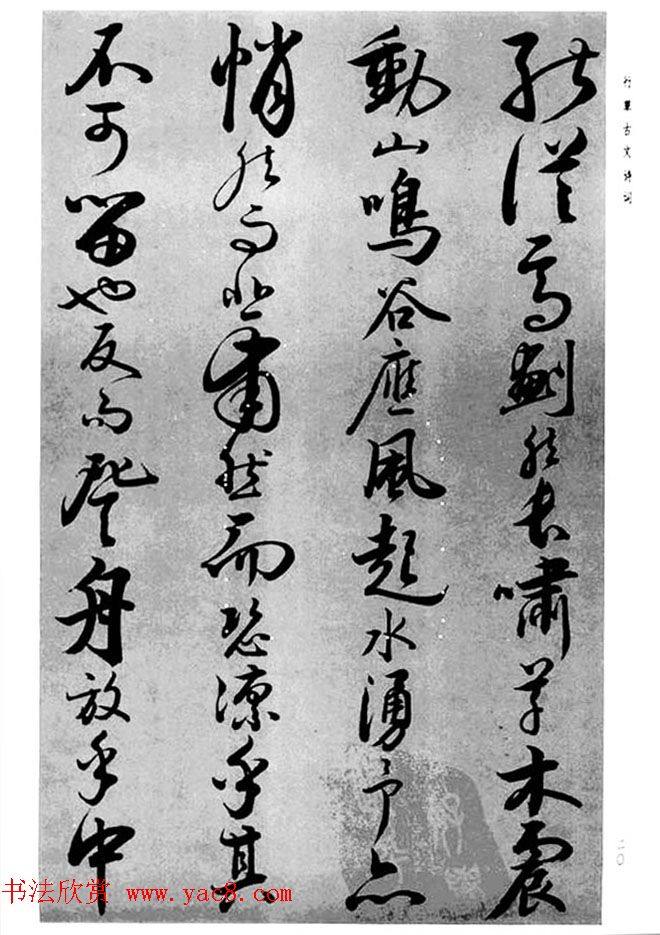 行草古文诗词
能從焉劃然長嘯草木震
動山鳴谷應風起水湧予亦
悄然而悲肅然而恐凜乎其
不可留也反而登舟放乎中
二〇
书法欣赏 www.yac8.com